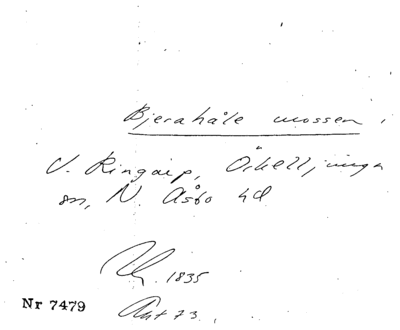 Bjerahåle mossen,
V. Ringarp, Örkelljunga
sn, N. Åsbo hd
1835
Nr 7479
Ant 73.